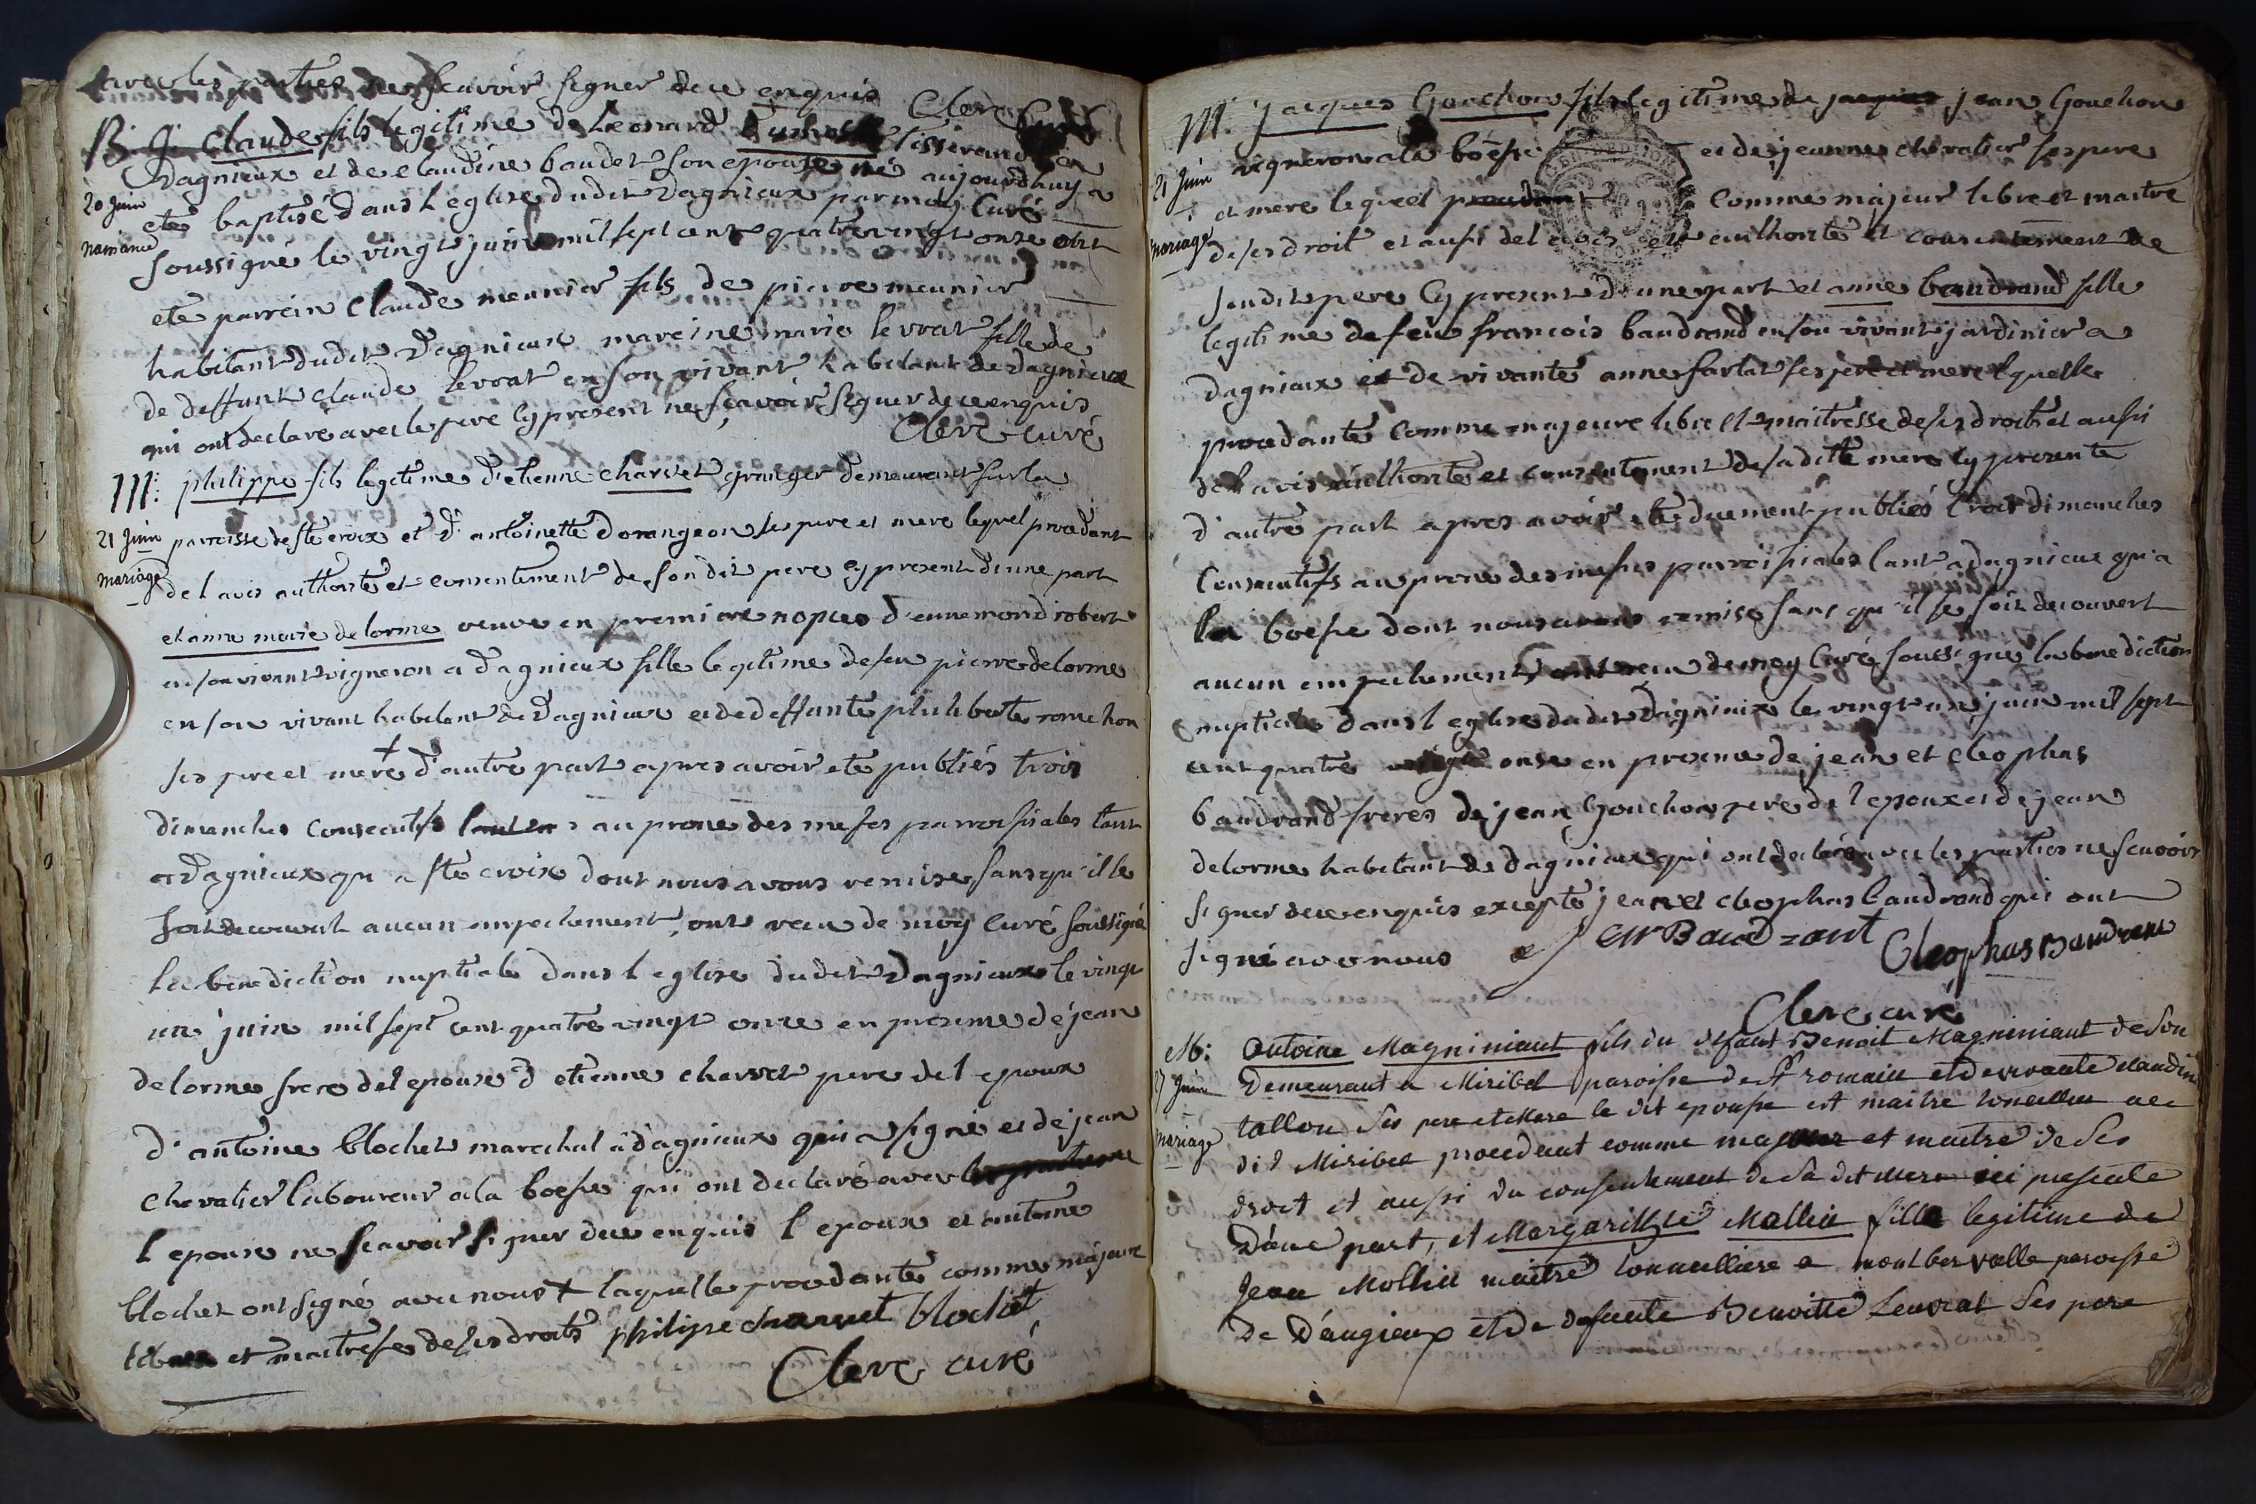 avec les parties ne scavoir signer de ce enquis Clerc curé
B. Claude fils legitime de Leonard tisserand a
Dagnieux et de claudine baudet son epouse né aujourdhuy a
20 Juin
naissance
eté baptisé dans l'eglise dudit Dagnieux par moy Curé
soussigné le vingt juin mil sept cent quatre vingt onze ont
eté parrein Claude meunier fils de pierre meunier
habitant dudit Dagnieux mareine marie levrat fille de
de deffunt claude levrat en son vivant habitant de Dagnieux
qui ont declare avec le pere cy present ne sçavoir signer de ce enquis
Clerc curé
M: philippe fils legitime d'etienne charvet granger demeurant sur la
21 Juin
mariage
parroisse de ste croix et d'antoinette Dorangeon ses pere et mere lequel procedant
de l'avis authorité et consentement de son dit pere cy present d'une part
et anne marie delorme veuve en premiere nopces d'ennemond robert
en son vivant vigneron a d'agnieux fille legitime de feu pierre delorme
en son vivant habitant de d'agnieux et de deffunte philiberte romehon
ses pere et mere + d'autre part apres avoir eté publiés trois
dimanches consecutifs au prone des messes parroissiales tant
a d'agnieux qu'a ste croix dont nous avons remise sans qu'il se
soit decouvert aucun empechement, ont reçu de moy Curé soussigné
la benediction nuptiale dans l'eglise dudit Dagnieux le vingt
un juin mil sept cent quatre vingt onze en presence de jean
delorme frere de l'epouse d'etienne charvet pere de l'epoux
d'antoine blochet marechal a d'agnieux qui a signé et de jean
Chevalier laboureur a la boesse qui ont declaré avec
l'epouse ne scavoir signer de ce enquis l'epoux et antoine
blochet ont signé avec nous + laquelle procedante comme majeure
libre et maitresse de ses droits philippe charvet blochet
Clerc curé
M. Jacques Gouchon fils legitime de jacques jean Gouchon
21 Juin
mariage
vigneron a la boësse et de jeanne chevalier ses pere
et mere lequel procedant comme majeur libre et maitre
de ses droit et aussi de l'avis authorité et consentement de
sondit pere cy present d'une part et anne baudrand fille
legitime de feu francois baudrand en son vivant jardinier a
Dagnieux et de vivante anne farlat ses pere et mere lquelle
procedante comme majeure libre et maitresse de ses droits et aussi
de l'avis authorité et consentement de sa ditte mere cy presente
d'autre part apres avoir eté duement publiés trois dimanches
consecutifs au prone des messes parroissiales tant a dagnieux qu'a
la boesse dont nous avons remise sans qu'il se soit decouvert
aucun empechement ont reçu de moy Curé soussigné la benediction
nuptiale dans l'eglise dudit Dagnieux le vingt un juin mil sept
cent quatre vingt onze en presence de jean et cleophas
baudrand freres de jean Gouchon pere de l'epoux et de jean
delorme habitant de dagnieux qui ont declaré avec les parties ne scavoir
signer de ce enquis excepté jean et cleophas baudrand qui ont
signé avec nous Baudrant Cleophas Baudrant
Clerc curé
M: Antoine Magniniant fils du defunt Benoit Magniniant de son
27 Juin
mariage
Demeurant a Miribel paroisse de St romain et de vivante claudine
tallon ses pere et Mere le dit epoux est maitre tonnelier au
dit Miribel procedant comme majeur et maitre de ses
droit et aussi du consentement de sa dit mere ici presente
D'une part, et Margarithe Mallia fille legitime de
Jean Mollia maitre tonnelliere a montbervalle paroisse
de D'angieux et de defunte Benoitte Leuvrat ses pere